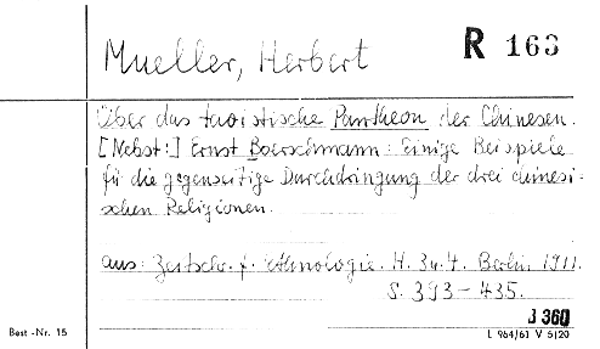 Mueller, Herbert
R 163
Über das taoistische Pantheon der Chinesen.
[Nebst:] Ernst Boerschmann: Einige Beispiele
für die gegenseitige Durchdringung der drei chinesi-
schen Religionen.
aus: Zeitschr. f. Ethnologie. H. 3u.4. Berlin 1911.
S. 393-435.
J 360
Best.-Nr. 15
L 964/61 V 5/20